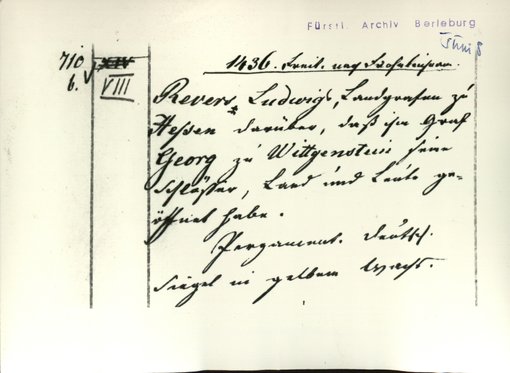 Fürstl. Archiv Berleburg
710
b. XIV
VIII
1436. Freit. nach
Revers Ludwigs, Landgrafen zu
Hessen darüber, daß ihm Graf
Georg zu Wittgenstein seine
Schlösser, Land und Leute ge-
öffnet habe.
Pergament. Deutsch.
Siegel in gelbem Wachs.